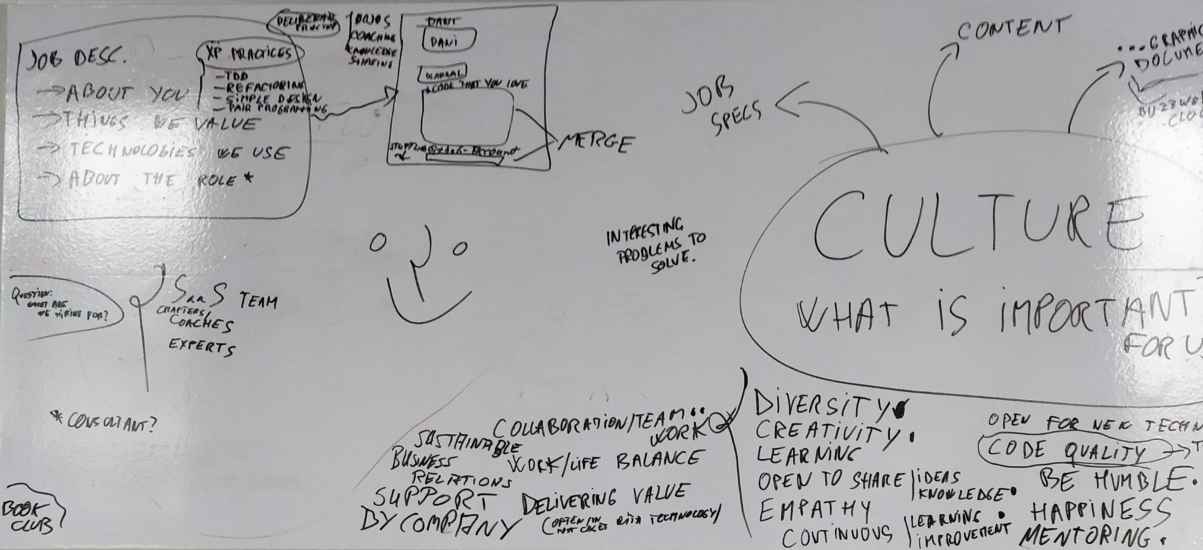 JOB DESC.
→ ABOUT YOU
→ THINGS WE VALUE
→ TECHNOLOGIES WE USE
→ ABOUT THE ROLE *
XP PRACTICES
- TDD
- REFACTORING
- SIMPLE DESIGN
- PAIR PROGRAMMING
DOJOS
COACHING
KNOWLEDGE
SHARING
DANI
CODE THAT YOU LOVE
MERGE
CONTENT
...GRAPHIC
DOCUME
CLO
JOB
SPECS
CULTURE
WHAT IS IMPORTANT
FOR U
INTERESTING
PROBLEMS TO
SOLVE.
QUESTION:
WHAT ARE
WE HIRING FOR?
SaaS TEAM
CRAFTERS/
COACHES
EXPERTS
* CONSULTANT?
BOOK
CLUB
COLLABORATION/TEAM..
WORK
BUSINESS
RELATIONS
WORK/LIFE BALANCE
SUPPORT
BY COMPANY
DELIVERING VALUE
DIVERSITY
CREATIVITY.
LEARNING
OPEN TO SHARE / IDEAS
KNOWLEDGE.
EMPATHY
CONTINUOUS / LEARNING.
IMPROVEMENT
OPEN FOR NEW TECHN
CODE QUALITY → T
BE HUMBLE.
HAPPINESS
MENTORING.